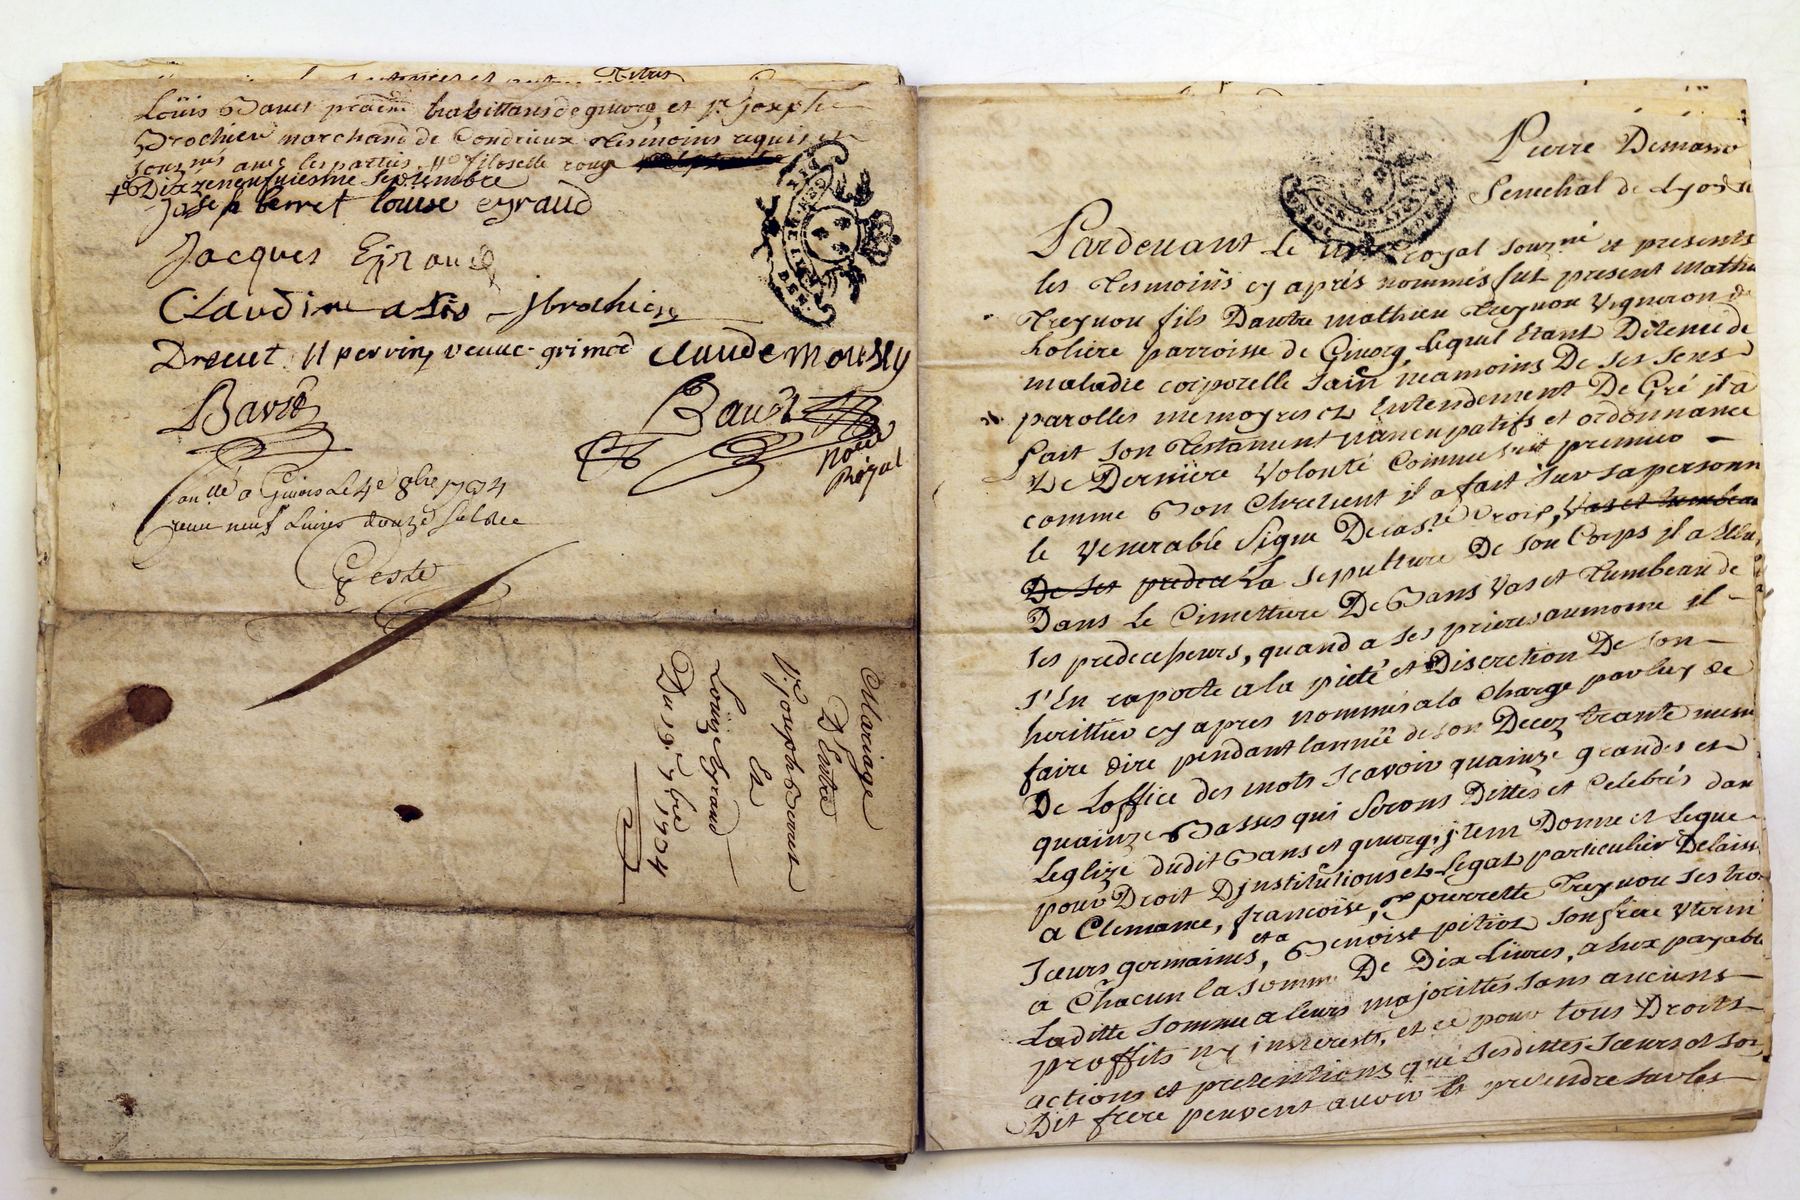 Loüis Bauet praticien habittans de givorg, et pr. joseph
Brochieu marchand de Condrieux tesmoins requis et
souznés avec les parties filoselle rouge
+ Dixzeneufuiesme Septembre
Joseph berret louise eyraud
Jacques Eyraud
Claudine Brochieu
Drevet perrin veuve grimod claude mousy
Bavet Baudt
Noere
Royal
Conllé a Givors Le 4e 8bre 1704
receu neuf Livres douze sols
Geste
Mariage
D'Entre
Sr. Joseph Berret
Et
Loüize Eyraud
Du 19e 7bre 1704
Pierre Demasso
Senechal de Lyon
Pardeuant Le royal souzné et presents
les tesmoiñs cy aprés nommés fut present Mathieu
treynou fils D'autre mathieu treynou Vigneron de
holiere parroisse de Givorg, Lequel Etant Detenu de
maladie corporelle sain neamoins De ses sens
parolles memoyre et Entendement De Gré il a
fait son testament nuncupatifs et ordonnance
De Derniere Volonté Comme suit premier
comme Bon Chretient il a fait sur sa personne
le Venerable Signe De la ste Croix, Vas et tumbeau
De ses predece La sepulture De son Corps il a Elu
Dans le Cimettiere De Bans Vas et tumbeau de
ses predecesseurs, quand a ses prieres aumone il
s'En raporte a la pieté et Discretion De son
herittier cy apres nommé a la Charge par luy de
faire dire pendant l'année de son Decez trante messes
De Loffice des mots scavoir quainze grandes et
quainze Basses qui Serons Dittes et Celebrés dans
Leglize dudit Bans et givorg, jtem Donne et Legue
pour Droit D'jnstitutions et Legat particulier Delaisse
a Clemance, francoise, et pierrette Treynou ses trois
sœurs germaines, et a Benoist pitiot son frere Uterin
a Chacun la somme De Dix Livres, a Eux payable
Laditte somme a leurs majorittés sans aucuns
proffits ny interests, et ce pour tous Droits
actions et pretentions que sesdittes sœurs et son
Dit frere peuvent avoir et pretendre sur les